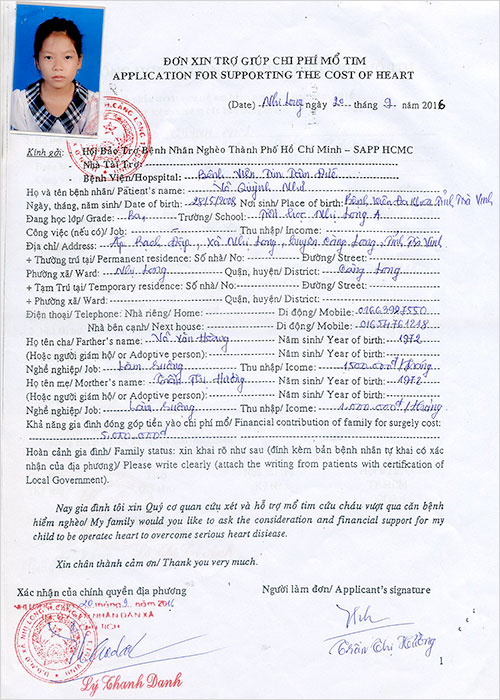 ĐƠN XIN TRỢ GIÚP CHI PHÍ MỔ TIM
APPLICATION FOR SUPPORTING THE COST OF HEART
(Date) Nhị Long ngày 20 tháng 9 năm 2016
Kính gởi: Hội Bảo Trợ Bệnh Nhân Nghèo Thành Phố Hồ Chí Minh – SAPP HCMC
Nhà Tài Trợ:
Bệnh Viện/Hopspital: Bệnh Viện Tim Tâm Đức
Họ và tên bệnh nhân/ Patient's name: Võ Quỳnh Như
Ngày, tháng, năm sinh/ Date of birth: 28/5/2008 Nơi sinh/ Place of birth: Bệnh viện Đa Khoa Tỉnh Trà Vinh
Đang học lớp/ Grade: Ba, Trường/ School: Tiểu học Nhị Long A
Công việc (nếu có)/ Job: Thu nhập/ Income:
Địa chỉ/ Address: Ấp Rạch xã Nhị Long, huyện Càng Long, Tỉnh Trà Vinh
+ Thường trú tại/ Permanent residence: Số nhà/ No: Đường/ Street:
Phường xã/ Ward: Nhị Long Quận, huyện/ District: Càng Long
+ Tạm Trú tại/ Temporary residence: Số nhà/ No: Đường/ Street:
+ Phường xã/ Ward: Quận, huyện/ District:
Điện thoại/ Telephone: Nhà riêng/ Home: Di động/ Mobile:
Nhà bên cạnh/ Next house: Di động/ Mobile:
Họ tên cha/ Farther's name: Võ Văn Hoàng Năm sinh/ Year of birth: 1972
(Hoặc người giám hộ/ or Adoptive person): Năm sinh/ Year of birth:
Nghề nghiệp/ Job: Làm ruộng Thu nhập/ Icome: 1500.000đ/tháng
Họ tên mẹ/ Morther's name: Trần Thị Hường Năm sinh/ Year of birth: 1972
(Hoặc người giám hộ/ or Adoptive person): Năm sinh/ Year of birth:
Nghề nghiệp/ Job: Làm ruộng Thu nhập/ Icome: 1.000.000đ/tháng
Khả năng gia đình đóng góp tiền vào chi phí mổ/ Financial contribution of family for surgely cost:
5.000.000đ
Hoàn cảnh gia đình/ Family status: xin khai rõ như sau (đính kèm bản bệnh nhân tự khai có xác
nhận của địa phương)/ Please write clearly (attach the writing from patients with certification of
Local Government).
Nay gia đình tôi xin Quý cơ quan cứu xét và hỗ trợ mổ tim cứu cháu vượt qua căn bệnh
hiểm nghèo/ My family would you like to ask the consideration and financial support for my
child to be operatec heart to overcome serious heart disiease.
Xin chân thành cảm ơn/ Thank you very much.
Xác nhận của chính quyền địa phương
Người làm đơn/ Applicant's signature
20 tháng 9 năm 2016
Trần Thị Hường
Lý Thanh Danh
1